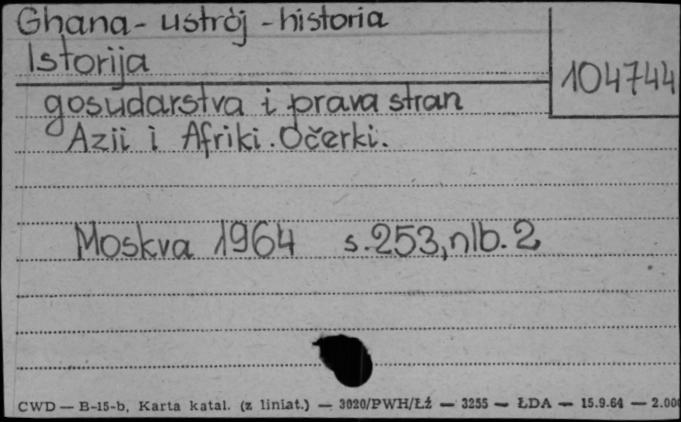 Ghana - ustrój - historia
Istorija
104744
gosudarstva i prava stran
Azii i Afriki. Očerki.
Moskva 1964 s. 253, nlb. 2
CWD — B-15-b, Karta katal. (z liniat.) — 3020/PWH/Łź — 3255 — ŁDA — 15.9.64 — 2.000